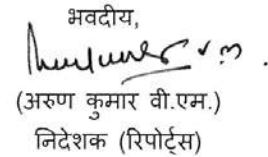 भवदीय,
(अरुण कुमार वी.एम.)
निदेशक (रिपोर्ट्स)